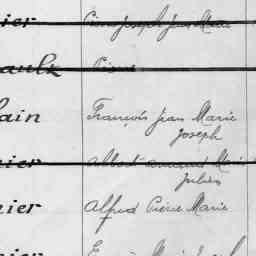 ier Pierre Joseph Jean Marie
aulx Pierre
lain François Jean Marie
Joseph
nier Albert Armand Marie
Julien
nier Alfred Pierre Marie
nier